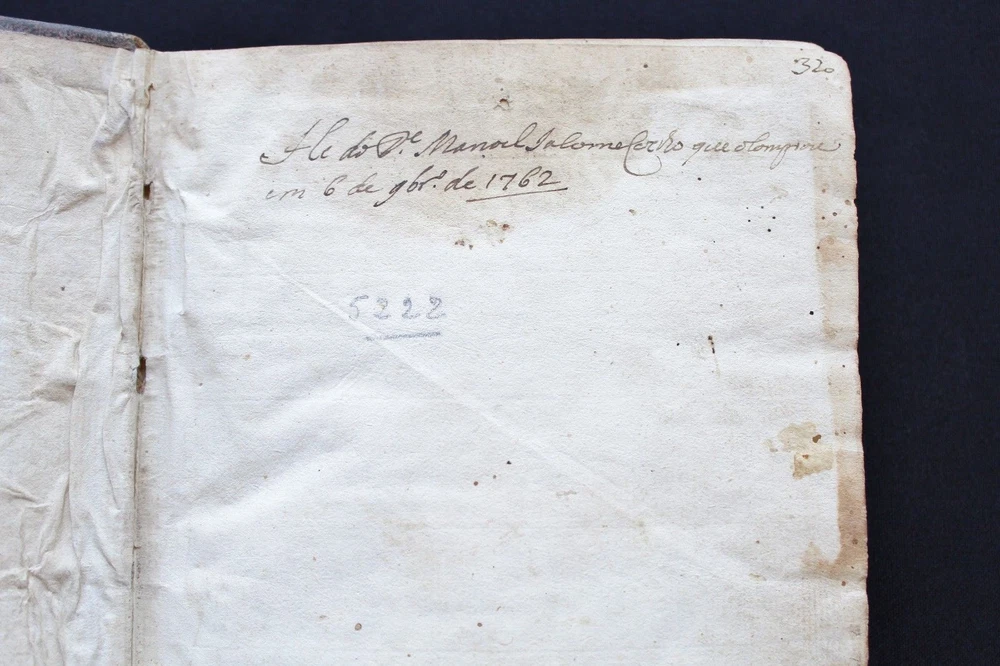 320
He do P.e Manoel Salome que o comprou
em 6 de 9br.o de 1762
5222